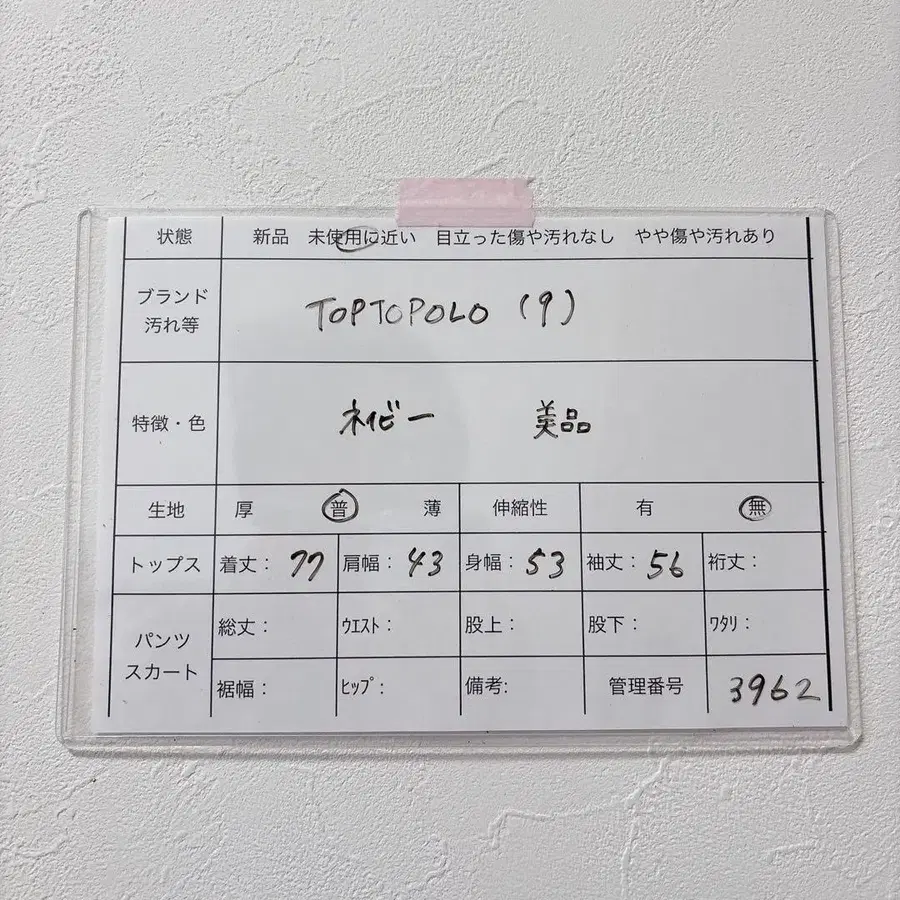 状態 新品 未使用に近い 目立った傷や汚れなし やや傷や汚れあり
ブランド
汚れ等
TOPTOPOLO (9)
特徴・色 ネイビー 美品
生地 厚 普 薄 伸縮性 有 無
トップス 着丈: 77 肩幅: 43 身幅: 53 袖丈: 56 裄丈:
パンツ
スカート
総丈: ウエスト: 股上: 股下: ワタリ:
裾幅: ヒップ: 備考: 管理番号 3962